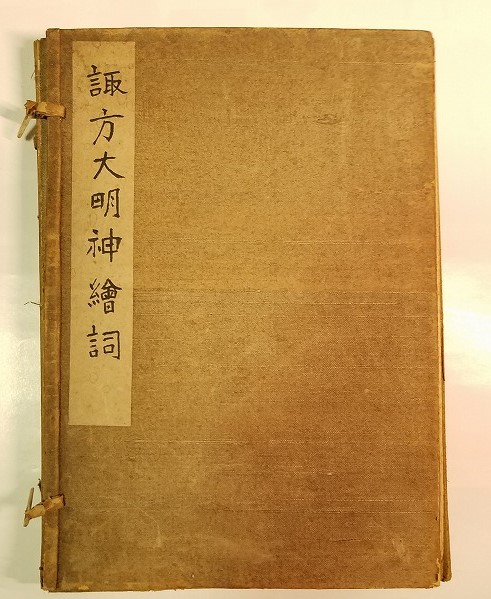 諏方大明神繪詞